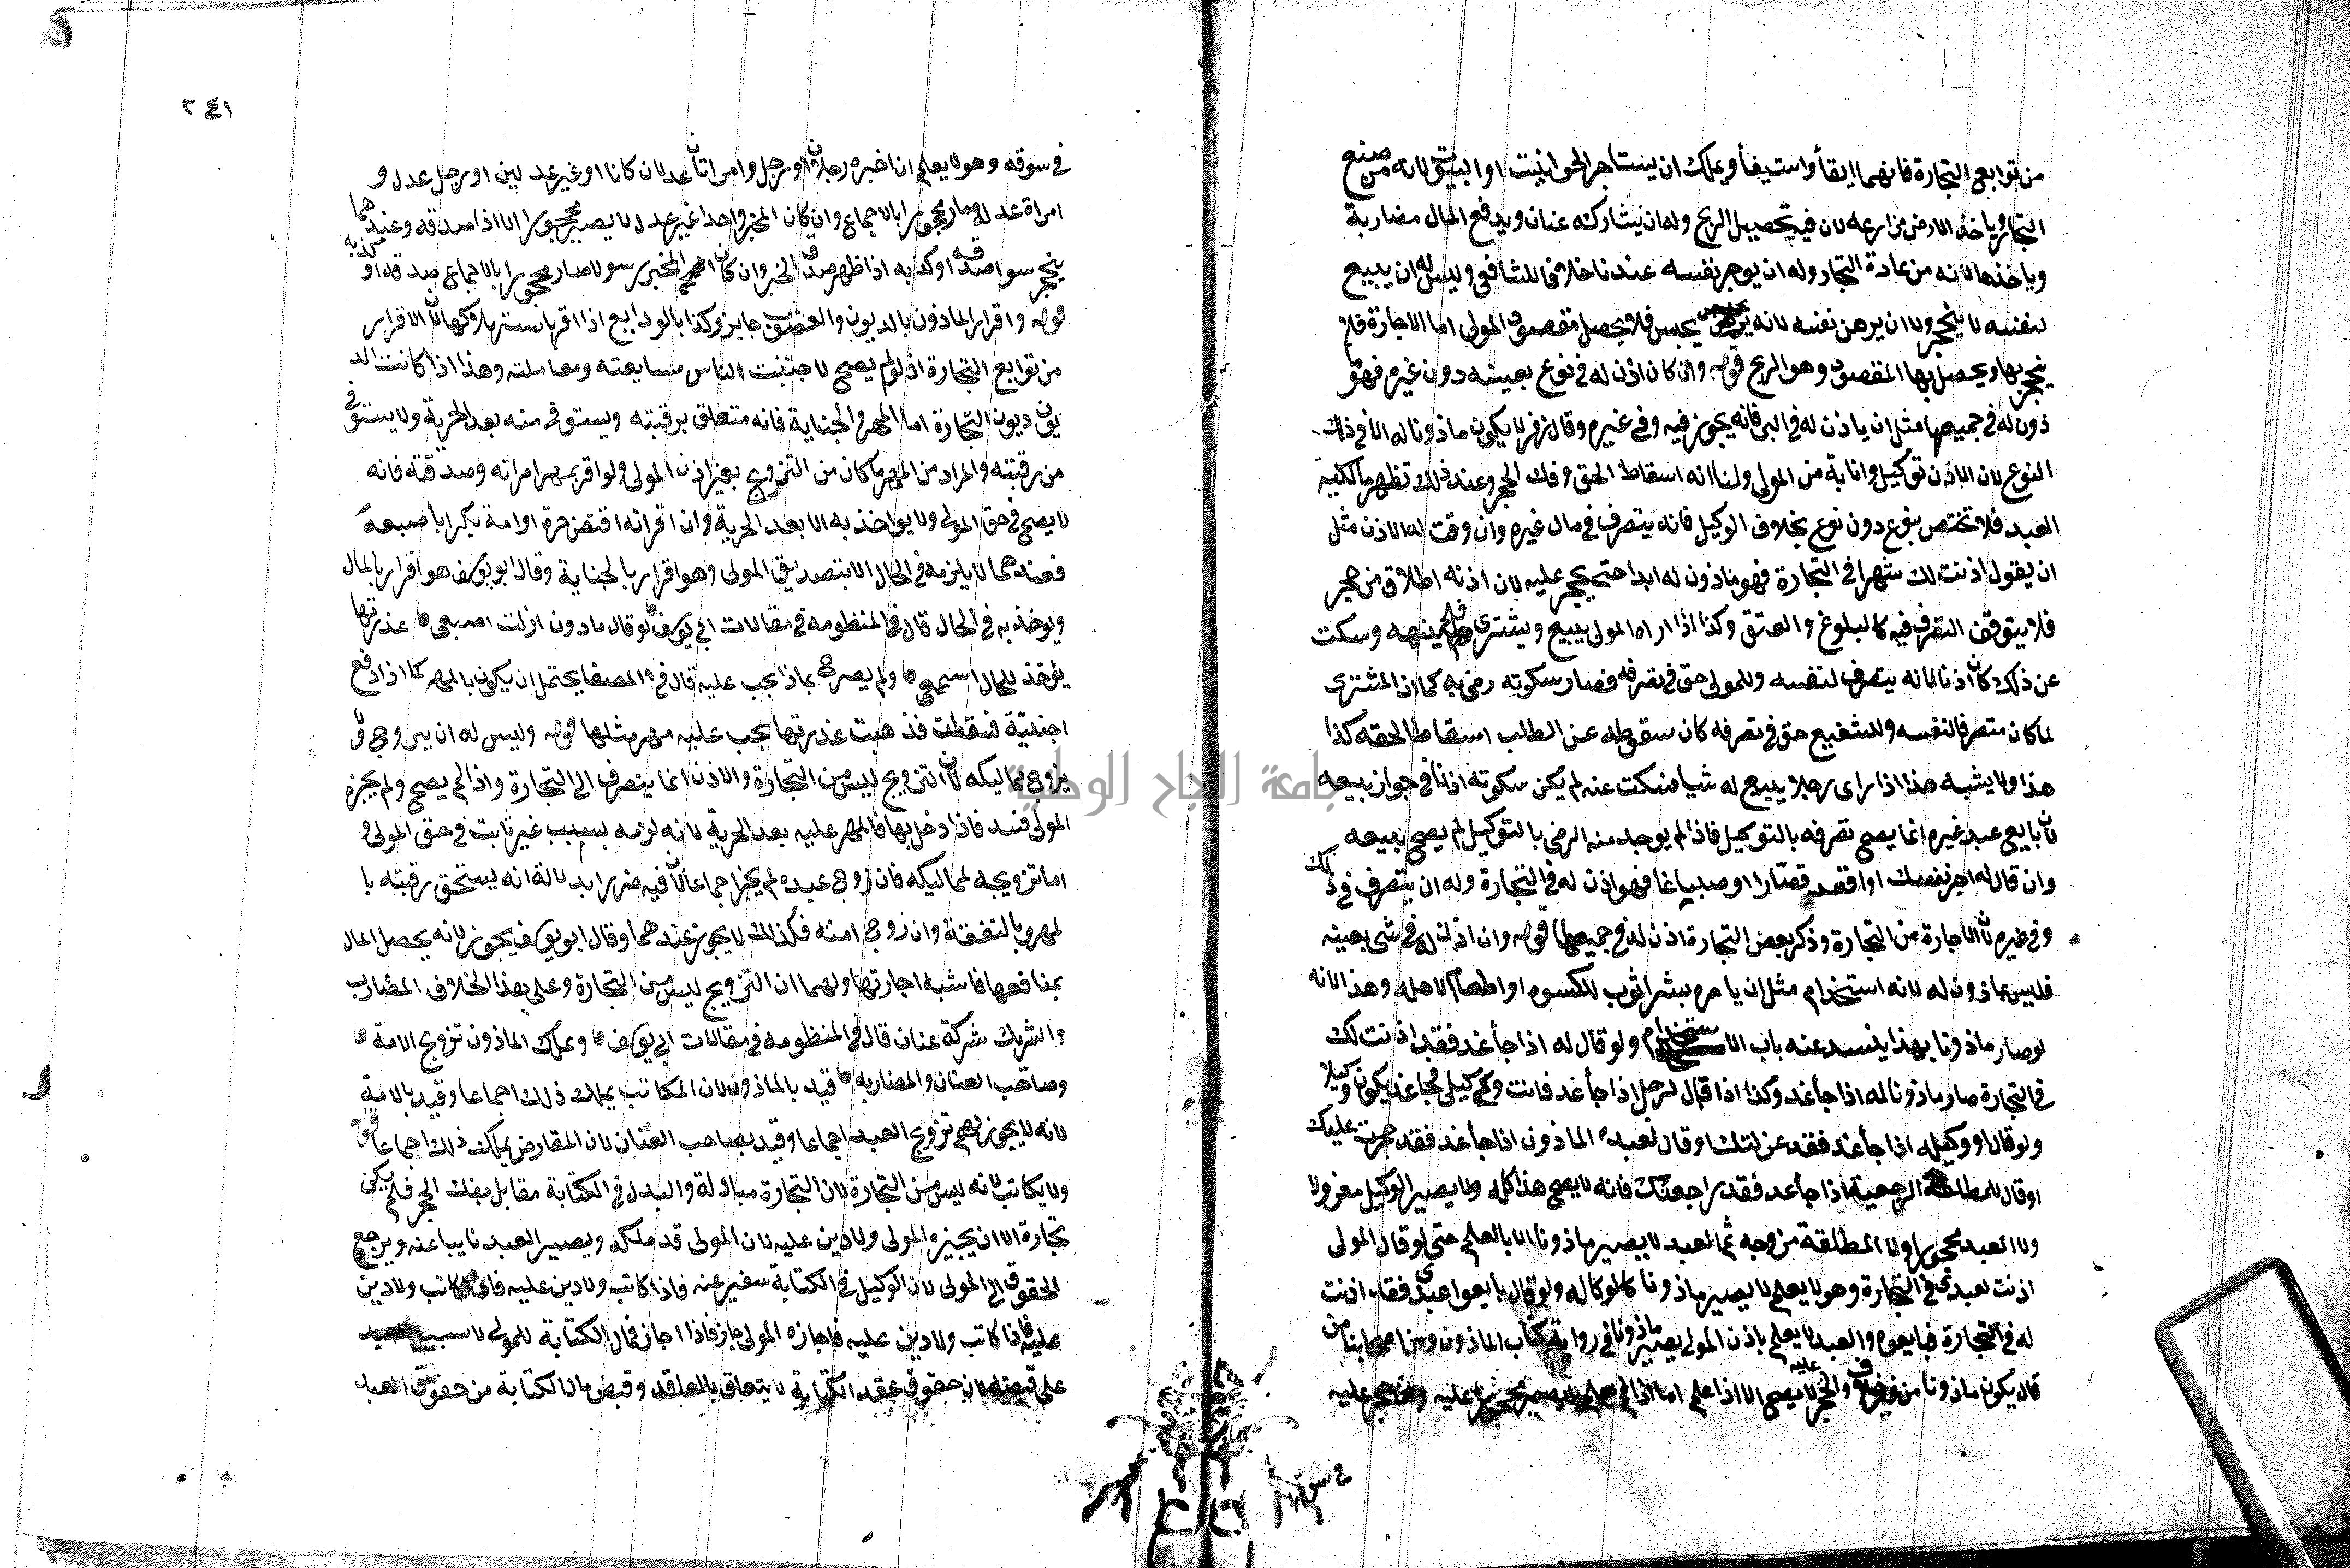 من توابع التجارة فانهما ايفأ واستيفأ ويملك ان يستاجر الحوانيت او البيوت لانه من صنع
التجار وياخذ الارض مزارعة لان فيه تحصيل الربح وله ان يشارك عنان ويدفع المال مضاربة
وياخذها لانه من عادة التجار وله ان يوجر نفسه عندنا خلافا للشافعي وليس له ان يبيع
لنفسه لا ينجر ولا ان يرهن نفسه لانه يحبس فلا يحصل مقصود المولى اما الاجارة فلا
ينجر بها ويحصل بها المقصود وهو الربح قوله وان كان اذن له في نوع بعينه دون غيره فهو ما
ذون له في جميعها مثل ان ياذن له في البز فانه يجوز فيه وفي غيره وقال زفر لا يكون ماذونا له الا في ذلك
النوع لان الاذن توكيل وانابة من المولى ولنا انه اسقاط الحق وفك الحجر وعند ذلك تظهر مالكية
العبد فلا تختص بنوع دون نوع بخلاف الوكيل فانه يتصرف في مال غيره وان وقت له الاذن مثل
ان يقول اذنت لك شهرا في التجارة فهو ماذون له ابدا حتى يحجر عليه لان اذنه اطلاق من حجر
فلا يتوقف التصرف فيه كالبلوغ والعتق وكذا اذا راه المولى يبيع ويشتري فلم ينهه وسكت
عن ذلك كان اذنا لانه يتصرف لنفسه وللمولى حق في تصرفه فصار سكوته رضى به كما ان المشتري
لما كان متصرفا لنفسه وللشفيع حق في تصرفه كان سقوطه عن الطلب اسقاطا لحقه كذا
هذا ولا يشبه هذا اذا راى رجلا يبيع له شيا فسكت عنه لم يكن سكوته اذنا في جواز بيعه
لان بايع عبد غيره انما يصح تصرفه بالتوكيل فاذا لم يوجد منه الرضى بالتوكيل لم يصح بيعه
وان قال له اجر نفسك او اقعد قصارا او صباغا فهو اذن له في التجارة وله ان يتصرف في ذلك
وفي غيره لان الاجارة من التجارة وذكر بعض التجارة اذن له في جميعها قوله وان اذن له في شي بعينه
فليس بماذون له لانه استخدام مثل ان يامره بشرا ثوب للكسوه او اطعام لاهله وهذا لانه
لو صار ماذونا بهذا ينسد عنه باب الاستخدام ولو قال له اذا جأ غد فقد اذنت لك
في التجارة صار ماذونا له اذا جأ غد وكذا اذا قال لرجل اذا جأ غد فانت وكيلي فجا غد يكون وكيلا
ولو قال لوكيله اذا جأ غد فقد عزلتك او قال لعبده الماذون اذا جأ غد فقد حجرت عليك
او قال للمطلقة الرجعية اذا جأ غد فقد راجعتك فانه لا يصح هذا كله ولا يصير الوكيل معزولا
ولا العبد محجورا ولا المطلقة من وجه ثم العبد لا يصير ماذونا الا بالعلم حتى لو قال المولى
اذنت لعبدي في التجارة وهو لا يعلم لا يصير ماذونا كالوكالة ولو قال بايعوا عبدي فقد اذنت
له في التجارة فبايعوه والعبد لا يعلم باذن المولى يصير ماذونا في رواية كتاب الماذون ومن اصحابنا من
قال يكون ماذونا من غير خلاف والحجر عليه لا يصح الا اذا علم اما اذا لم يعلم لا يصير محجورا عليه حجر عليه
في سوقه
٢٤١
في سوقه وهو لا يعلم ان اخبره رجلان او رجل وامراتان عدلان كانا او غير عدلين او رجل عدل و
امراة عدلة صار محجورا بالاجماع وان كان المخبر واحدا غير عدل لا يصير محجورا الا اذا صدقه وعندهما
ينحجر سوا صدقه او كذبه اذا ظهر صدق الخبر وان كان المخبر رسولا صار محجورا بالاجماع صدقه او كذبه
قوله واقرار الماذون بالديون والغصوب جايز وكذا بالودايع اذا اقر باستهلاكها لان الاقرار
من توابع التجارة اذ لو لم يصح لاجتنبت الناس مبايعته ومعاملته وهذا اذا كانت الد
يون ديون التجارة اما المهر والجناية فانه متعلق برقبته ويستوفى منه بعد الحرية ولا يستوفى
من رقبته والمراد من المهر ما كان من التزويج بغير اذن المولى ولو اقر بمهر امراته وصدقته فانه
لا يصح في حق المولى ولا يواخذ به الا بعد الحرية وان اقر انه افتض حرة او امة بكرا باصبعه
فعندهما لا يلزمه في الحال الا بتصديق المولى وهو اقرار بالجناية وقال ابو يوسف هو اقرار بالمال
ويوخذ به في الحال قال في المنظومة في مقالات ابي يوسف لو قال ماذون ازلت اصبعي عذرتها
يؤخذ للحال اسمعي ولم يصرح بماذا يجب عليه قال في المصفا يحتمل ان يكون بالمهر كما اذا دفع
اجنبيّة فسقطت فذهبت عذرتها يجب عليه مهر مثلها قوله وليس له ان يتزوج ولا
يزوج مماليكه لان التزويج ليس من التجارة والاذن انما ينصرف الى التجارة واذا لم يصح ولم يجزه
المولى فسد فاذا دخل بها فالمهر عليه بعد الحرية لانه لزمه بسبب غير ثابت في حق المولى و
اما تزويجه لمماليكه فان زوج عبده لم يجز اجماعا لان فيه ضررا بدلالة انه يستحق رقبته با
لمهر وبالنفقة وان زوج امته فكذلك لا يجوز عندهما وقال ابو يوسف يجوز لانه يحصل المال
بمنافعها فاشبه اجارتها ولهما ان التزويج ليس من التجارة وعلى هذا الخلاف المضارب
والشريك شركة عنان قال في المنظومة في مقالات ابي يوسف ويملك الماذون تزويج الامة
وصاحب العنان والمضاربه قيد بالماذون لان المكاتب يملك ذلك اجماعا وقيد بالامة
لانه لا يجوز لهم تزويج العبد اجماعا وقيد بصاحب العنان لان المفاوض يملك ذلك اجماعا قوله
ولا يكاتب لانه ليس من التجارة لان التجارة مبادلة والبدل في الكتابة مقابل بفك الحجر فلم يكن
تجارة الا ان يجيزه المولى ولا دين عليه لان المولى قد ملكه ويصير العبد نايبا عنه ويرجع
الحقوق الى المولى لان الوكيل في الكتابة سفير عنه فاذا كاتب ولا دين عليه كاتب ولا دين
عليه فاذا كاتب ولا دين عليه فاجازه المولى جاز فاذا اجاز فمال الكتابة للمولى لا سبيل للعبد
على قبضه لان حقوق عقد الكتابة لا يتعلق بالعاقد وقبض مال الكتابة من حقوق العبد
جامعة النجاح الوطنية